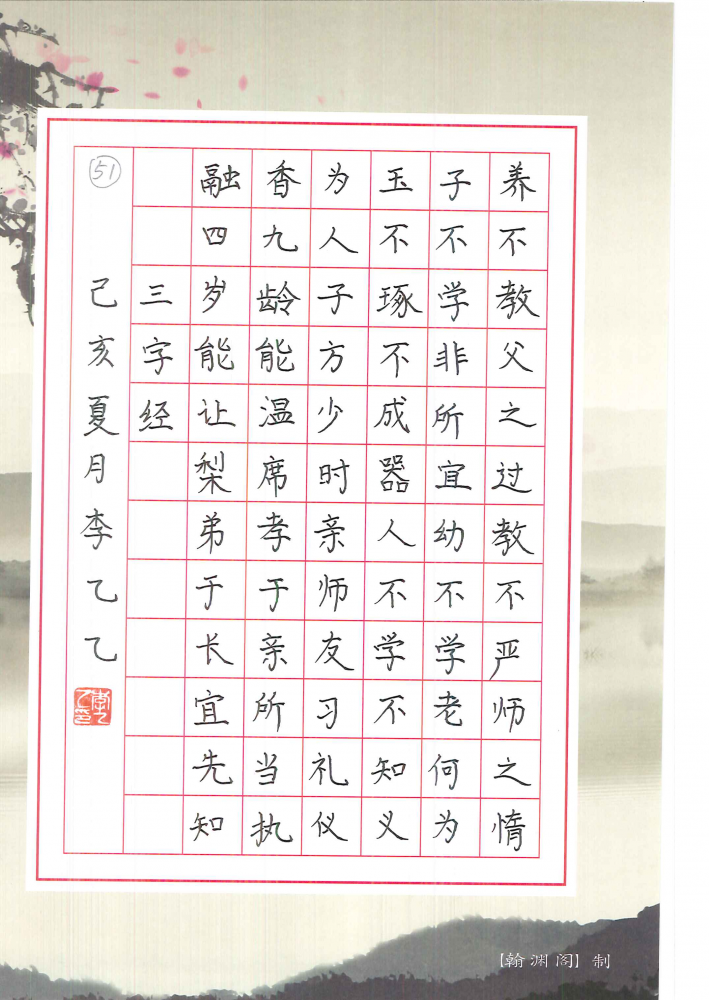 养不教父之过教不严师之惰
子不学非所宜幼不学老何为
玉不琢不成器人不学不知义
为人子方少时亲师友习礼仪
香九龄能温席孝于亲所当执
融四岁能让梨弟于长宜先知
三字经
己亥夏月李乙乙
51
【翰渊阁】制